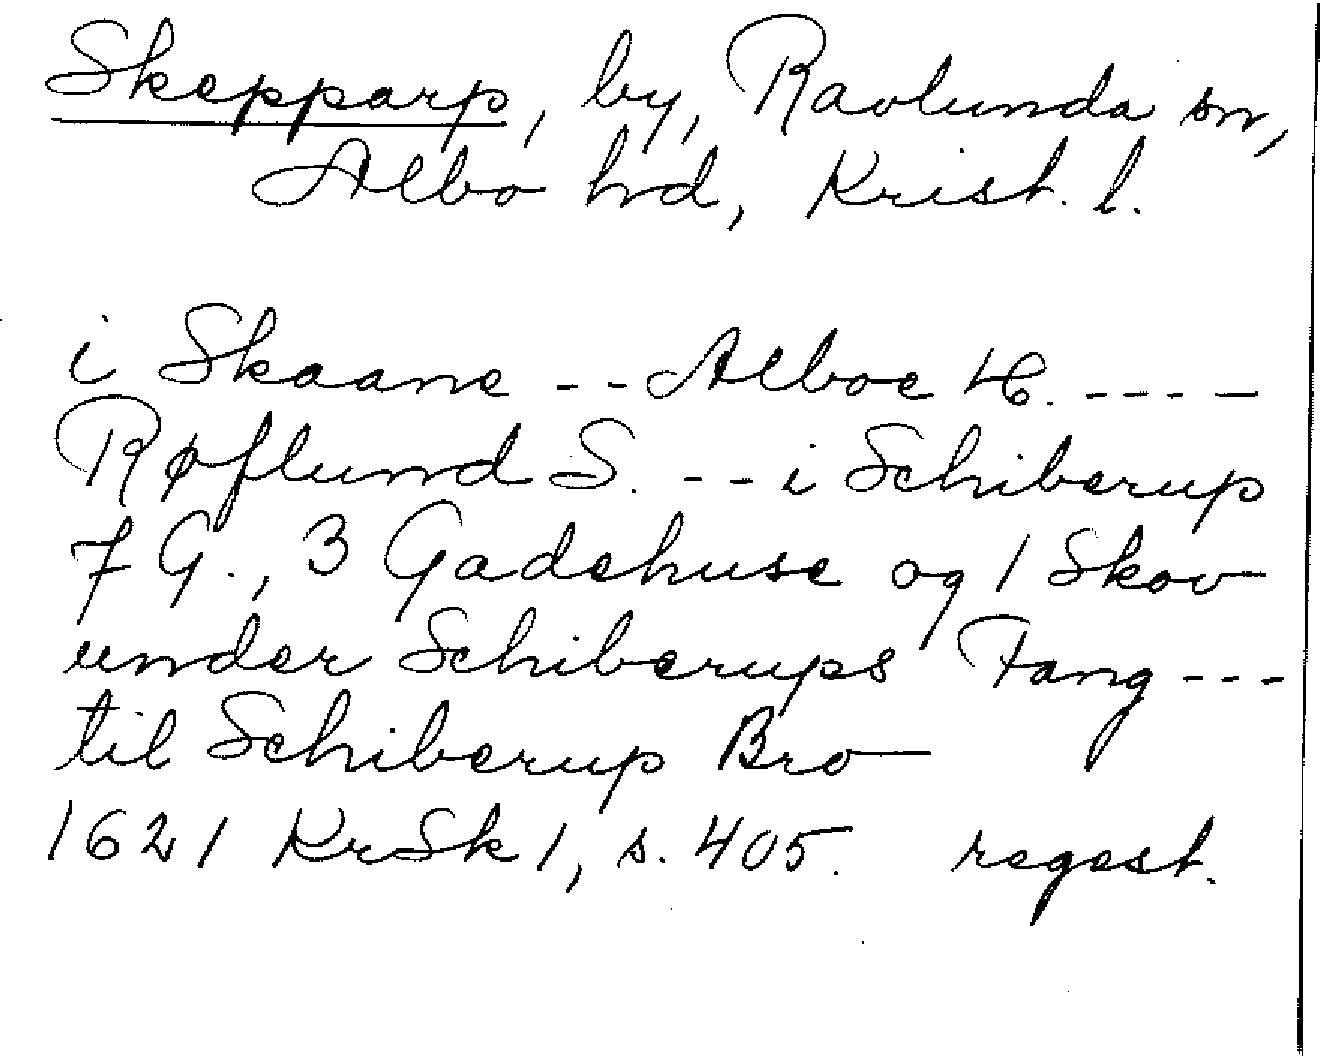 Skepparp, by, Ravlunda sn,
Albo hd, Krist. l.
i Skaane -- Alboe H. ----
Røflund S. -- i Schiberup
7 G., 3 Gadehuse og 1 Skov
under Schiberups Fang ---
til Schiberup Bro
1621 KrSk 1, s. 405. regest.